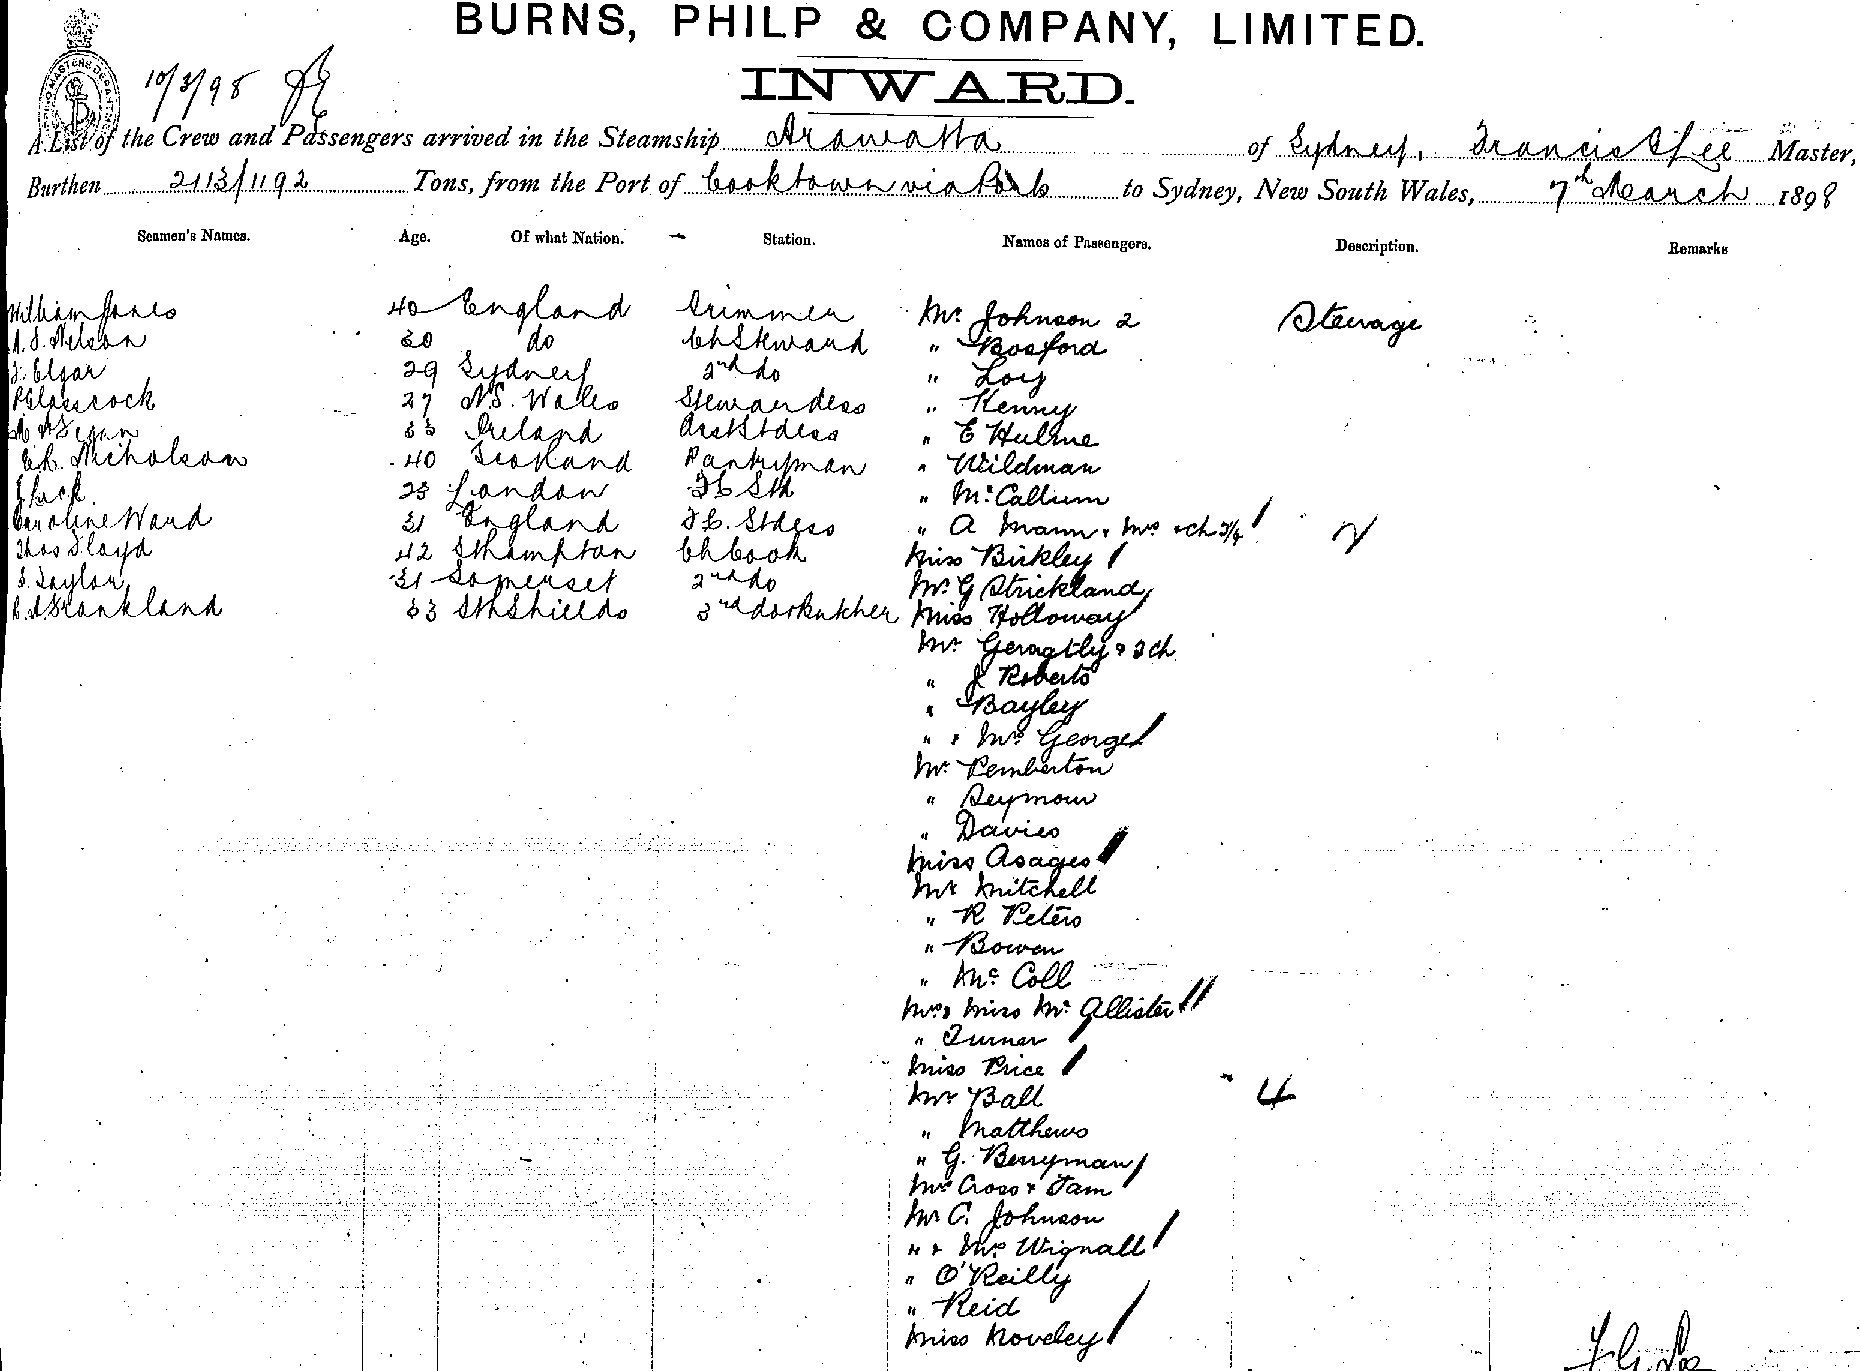 BURNS, PHILP & COMPANY, LIMITED.
INWARD.
10/3/98
A List of the Crew and Passengers arrived in the Steamship Arawatta of Sydney, Francis G Lee Master,
Burthen 2113/1192 Tons, from the Port of Cooktown via Ports to Sydney, New South Wales, 7th March 1898
Seamen's Names. Age. Of what Nation. Station. Names of Passengers. Description. Remarks
William Jones 40 England Trimmer Mr Johnson 2 Steerage
Nelson 30 do Ch Steward " Bosford
Elgar 29 Sydney 2nd do " Loy
Glasscock 27 N.S. Wales Stewardess " Kenny
33 Ireland Asst Stdess " E Hulme
Nicholson 40 Scotland Pantryman " Wildman
23 London " McCallum
Caroline Ward 31 England Stdess " A Mann & Mrs & ch 2
Thos Floyd 42 Sthampton Ch Cook Miss Birkley
S. Taylor 31 Somerset 2nd do Mr G Strickland
Frankland 33 Sth Shields 3rd do & Butcher Miss Holloway
Mr Geragtly & 2 ch
" J Roberts
" Bayley
" & Mrs George
Mr Pemberton
" Seymour
" Davies
Miss Asages
Mr Mitchell
" R Peters
" Bowen
" McColl
Mrs & Miss McAllister
" Turner
Miss Price
Mr Ball 4
" Matthews
" G. Berryman
Mrs Cross & Fam
Mr C. Johnson
" & Mrs Wignall
" O'Reilly
" Reid
Miss Noveley